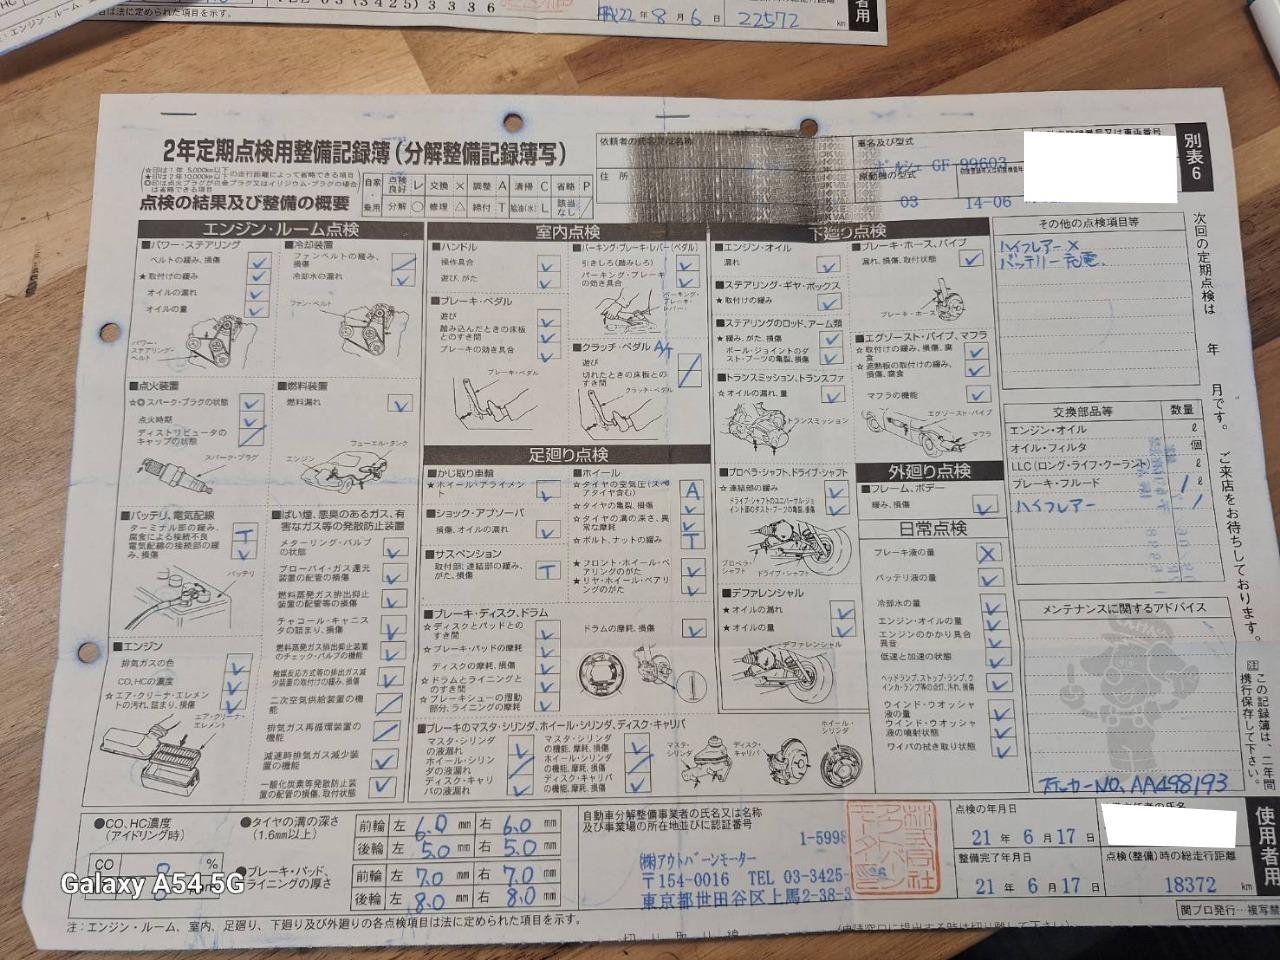 TEL 03(3425)3336
22年8月6日 22572 km
者用
項目は法に定められた項目を示す。
2年定期点検用整備記録簿(分解整備記録簿写)
点検の結果及び整備の概要
自家 点検良好 レ 交換 × 調整 A 清掃 C 省略 P
乗用 分解 ○ 修理 △ 締付 T 給油(水) L 該当なし /
依頼者の氏名又は名称
住所
車名及び型式
ポルシェ GF-99603
原動機の型式
03 14-06
別表6
エンジン・ルーム点検
■パワー・ステアリング
ベルトの緩み、損傷
★取付けの緩み
オイルの漏れ
オイルの量
パワー・ステアリング・ベルト
■冷却装置
ファンベルトの緩み、損傷
冷却水の漏れ
ファン・ベルト
■点火装置
☆◎スパーク・プラグの状態
点火時期
ディストリビュータのキャップの状態
スパーク・プラグ
■燃料装置
燃料漏れ
フューエル・タンク
エンジン
■バッテリ、電気配線
ターミナル部の緩み、腐食による接続不良 T
電気配線の接続部の緩み、損傷
バッテリ
■ばい煙、悪臭のあるガス、有害なガス等の発散防止装置
メターリング・バルブの状態
ブローバイ・ガス還元装置の配管の損傷
燃料蒸発ガス排出抑止装置の配管等の損傷
チャコール・キャニスタの詰まり、損傷
燃料蒸発ガス排出抑止装置のチェック・バルブの機能
触媒反応方式等の排出ガス減少装置の取付けの緩み、損傷
二次空気供給装置の機能
排気ガス再循環装置の機能
減速時排気ガス減少装置の機能
一酸化炭素等発散防止装置の配管の損傷、取付状態
■エンジン
排気ガスの色
CO、HCの濃度
☆エア・クリーナ・エレメントの汚れ、詰まり、損傷
エア・クリーナ・エレメント
室内点検
■ハンドル
操作具合
遊び、がた
■ブレーキ・ペダル
遊び
踏み込んだときの床板とのすき間
ブレーキの効き具合
ブレーキ・ペダル
■パーキング・ブレーキ・レバー(ペダル)
引きしろ(踏みしろ)
パーキング・ブレーキの効き具合
パーキング・ブレーキ・レバー
■クラッチ・ペダル A/T
遊び
切れたときの床板とのすき間
クラッチ・ペダル
足廻り点検
■かじ取り車輪
★ホイール・アライメント
■ショック・アブソーバ
損傷、オイルの漏れ
■サスペンション
取付部、連結部の緩み、がた、損傷 T
■ホイール
☆タイヤの空気圧(スペアタイヤ含む) A
☆タイヤの亀裂、損傷
☆タイヤの溝の深さ、異常な摩耗
☆ボルト、ナットの緩み T
★フロント・ホイール・ベアリングのがた
★リヤ・ホイール・ベアリングのがた
■ブレーキ・ディスク、ドラム
☆ディスクとパッドとのすき間
☆ブレーキ・パッドの摩耗
ディスクの摩耗、損傷
☆ドラムとライニングとのすき間
☆ブレーキシューの摺動部分、ライニングの摩耗
ドラムの摩耗、損傷
■ブレーキのマスタ・シリンダ、ホイール・シリンダ、ディスク・キャリパ
マスタ・シリンダの液漏れ
ホイール・シリンダの液漏れ
ディスク・キャリパの液漏れ
マスタ・シリンダの機能、摩耗、損傷
ホイール・シリンダの機能、摩耗、損傷
ディスク・キャリパの機能、摩耗、損傷
マスタ・シリンダ
ディスク・キャリパ
ホイール・シリンダ
下廻り点検
■エンジン・オイル
漏れ
■ステアリング・ギヤ・ボックス
★取付けの緩み
■ステアリングのロッド、アーム類
☆緩み、がた、損傷
ボール・ジョイントのダスト・ブーツの亀裂、損傷
■トランスミッション、トランスファ
☆オイルの漏れ、量
トランスミッション
■プロペラ・シャフト、ドライブ・シャフト
☆連結部の緩み
ドライブ・シャフトのユニバーサル・ジョイント部のダスト・ブーツの亀裂、損傷
プロペラ・シャフト
ドライブ・シャフト
■デファレンシャル
★オイルの漏れ
★オイルの量
デファレンシャル
■ブレーキ・ホース、パイプ
漏れ、損傷、取付状態
ブレーキ・ホース
■エグゾースト・パイプ、マフラ
☆取付けの緩み、損傷、腐食
☆遮熱板の取付けの緩み、損傷、腐食
マフラの機能
エグゾースト・パイプ
マフラ
外廻り点検
■フレーム、ボデー
緩み、損傷
日常点検
ブレーキ液の量 ×
バッテリ液の量
冷却水の量
エンジン・オイルの量
エンジンのかかり具合 異音
低速と加速の状態
ヘッドランプ、ストップ・ランプ、ウインカ・ランプ等の点灯、汚れ、損傷
ウインド・ウオッシャ液の量
ウインド・ウオッシャ液の噴射状態
ワイパの拭き取り状態
その他の点検項目等
ハイフレアー ×
バッテリー充電
交換部品等 数量
エンジン・オイル ℓ
オイル・フィルタ 個
LLC(ロング・ライフ・クーラント) ℓ
ブレーキ・フルード 1 ℓ
ハイフレアー 1
メンテナンスに関するアドバイス
ステッカーNO. AA498193
次回の定期点検は 年 月です。ご来店をお待ちしております。
注 記録簿は、二年間携行保存して下さい。
使用者用
●CO、HC濃度(アイドリング時)
CO %
●タイヤの溝の深さ(1.6mm以上)
前輪 左 6.0 mm 右 6.0 mm
後輪 左 5.0 mm 右 5.0 mm
●ブレーキ・パッド、ライニングの厚さ
前輪 左 7.0 mm 右 7.0 mm
後輪 左 8.0 mm 右 8.0 mm
自動車分解整備事業者の氏名又は名称及び事業場の所在地並びに認証番号
1-5998
(株)アウトバーンモーター
〒154-0016 TEL 03-3425-
東京都世田谷区上馬2-38-3
点検の年月日
21年 6月 17日
整備完了年月日
21年 6月 17日
点検(整備)時の総走行距離
18372 km
関プロ発行…複写禁
注:エンジン・ルーム、室内、足廻り、下廻り及び外廻りの各点検項目は法に定められた項目を示す。
切り取り線
Galaxy A54 5G